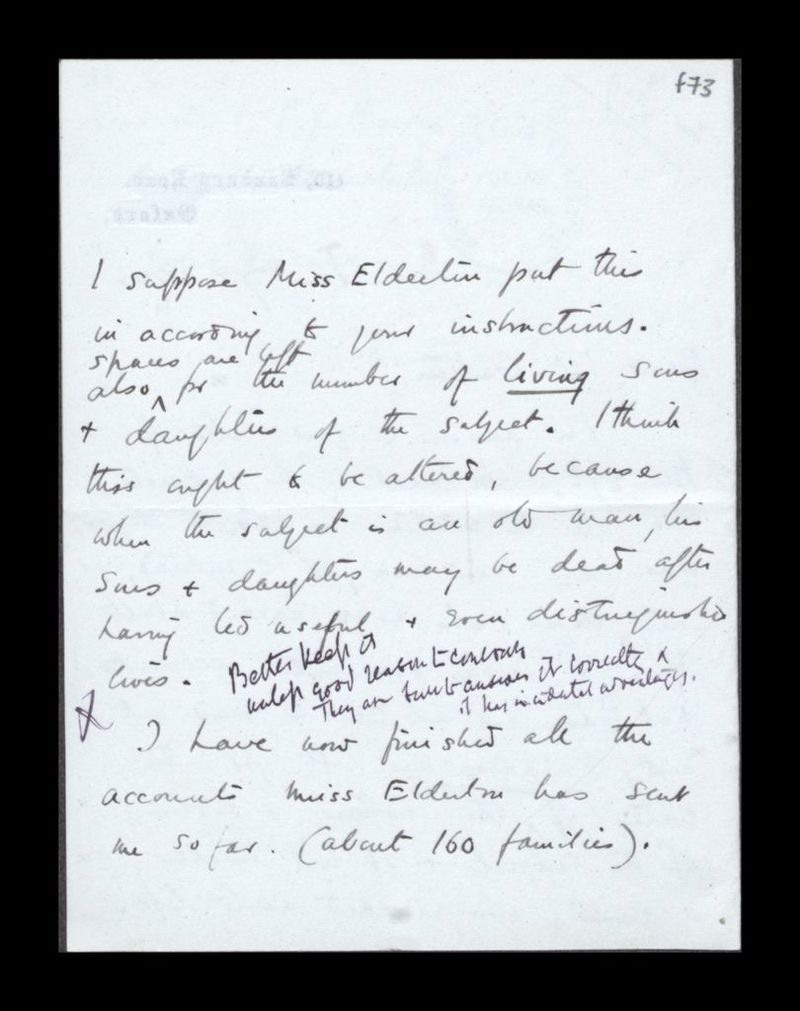 f73
I suppose Miss Elderton put this
in according to your instructions.
spaces are left
also, for the number of living sons
+ daughters of the subject. I think
this ought to be altered, because
when the subject is an old man, his
sons + daughters may be dead after
having led useful + even distinguished
lives.
Better keep it
unless good reason to contrary
They are sure to answer it correctly &
it has incidental advantages.
I have now finished all the
accounts Miss Elderton has sent
me so far. (about 160 families).